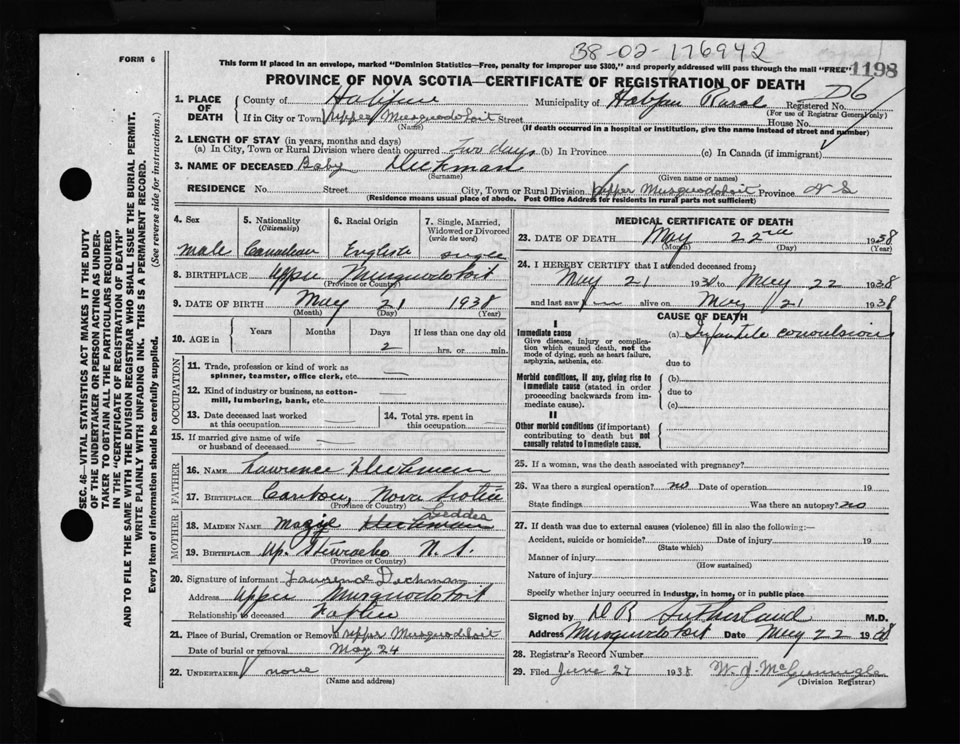 38-02-176942
FORM 6
This form if placed in an envelope, marked "Dominion Statistics—Free, penalty for improper use $300," and properly addressed will pass through the mail "FREE"
1198
PROVINCE OF NOVA SCOTIA—CERTIFICATE OF REGISTRATION OF DEATH
D6
1. PLACE OF DEATH County of Halifax Municipality of Halifax Rural Registered No.
(For use of Registrar General only)
If in City or Town Upper Musquodoboit Street House No.
(Name) (If death occurred in a hospital or institution, give the name instead of street and number)
2. LENGTH OF STAY (in years, months and days)
(a) In City, Town or Rural Division where death occurred two days (b) In Province (c) In Canada (if immigrant)
3. NAME OF DECEASED Baby Dickman
(Surname) (Given name or names)
RESIDENCE No. Street City, Town or Rural Division Upper Musquodoboit Province N S
(Residence means usual place of abode. Post Office Address for residents in rural parts not sufficient)
4. Sex 5. Nationality (Citizenship) 6. Racial Origin 7. Single, Married, Widowed or Divorced (write the word)
male Canadian English single
8. BIRTHPLACE Upper Musquodoboit
(Province or Country)
9. DATE OF BIRTH May 21 1938
(Month) (Day) (Year)
10. AGE in Years Months Days If less than one day old
2 hrs. or min.
OCCUPATION
11. Trade, profession or kind of work as spinner, teamster, office clerk, etc. —
12. Kind of industry or business, as cotton-mill, lumbering, bank, etc. —
13. Date deceased last worked at this occupation — 14. Total yrs. spent in this occupation —
15. If married give name of wife or husband of deceased —
FATHER
16. NAME Lawrence Dickman
17. BIRTHPLACE Caribou, Nova Scotia
(Province or Country)
MOTHER
Geddes
18. MAIDEN NAME Dickman
19. BIRTHPLACE Up. Stewiacke N. S.
(Province or Country)
20. Signature of informant Lawrence Dickman
Address Upper Musquodoboit
Relationship to deceased Father
21. Place of Burial, Cremation or Removal Upper Musquodoboit
Date of burial or removal May 24
22. UNDERTAKER none
(Name and address)
MEDICAL CERTIFICATE OF DEATH
23. DATE OF DEATH May 22nd 1938
(Month) (Day) (Year)
24. I HEREBY CERTIFY that I attended deceased from
May 21 1938 to May 22 1938
and last saw him alive on May 21 1938
CAUSE OF DEATH
I
Immediate cause (a) Infantile convulsions
Give disease, injury or complication which caused death, not the mode of dying, such as heart failure, asphyxia, asthenia, etc.
due to
Morbid conditions, if any, giving rise to Immediate cause (stated in order proceeding backwards from immediate cause).
(b)
due to
(c)
II
Other morbid conditions (if important) contributing to death but not causally related to Immediate cause.
25. If a woman, was the death associated with pregnancy?
26. Was there a surgical operation? no Date of operation 19
State findings Was there an autopsy? no
27. If death was due to external causes (violence) fill in also the following:—
Accident, suicide or homicide? Date of injury 19
(State which)
Manner of injury
(How sustained)
Nature of injury
Specify whether injury occurred in Industry, in home, or in public place
Signed by D R Sutherland M.D.
Address Musquodoboit Date May 22 1938
28. Registrar's Record Number
29. Filed June 27 1938 W. J. McGunnigle
(Division Registrar)
SEC. 46—VITAL STATISTICS ACT MAKES IT THE DUTY
OF THE UNDERTAKER OR PERSON ACTING AS UNDER-
TAKER TO OBTAIN ALL THE PARTICULARS REQUIRED
IN THE "CERTIFICATE OF REGISTRATION OF DEATH"
AND TO FILE THE SAME WITH THE DIVISION REGISTRAR WHO SHALL ISSUE THE BURIAL PERMIT.
WRITE PLAINLY WITH UNFADING INK. THIS IS A PERMANENT RECORD.
Every item of information should be carefully supplied. (See reverse side for instructions.)